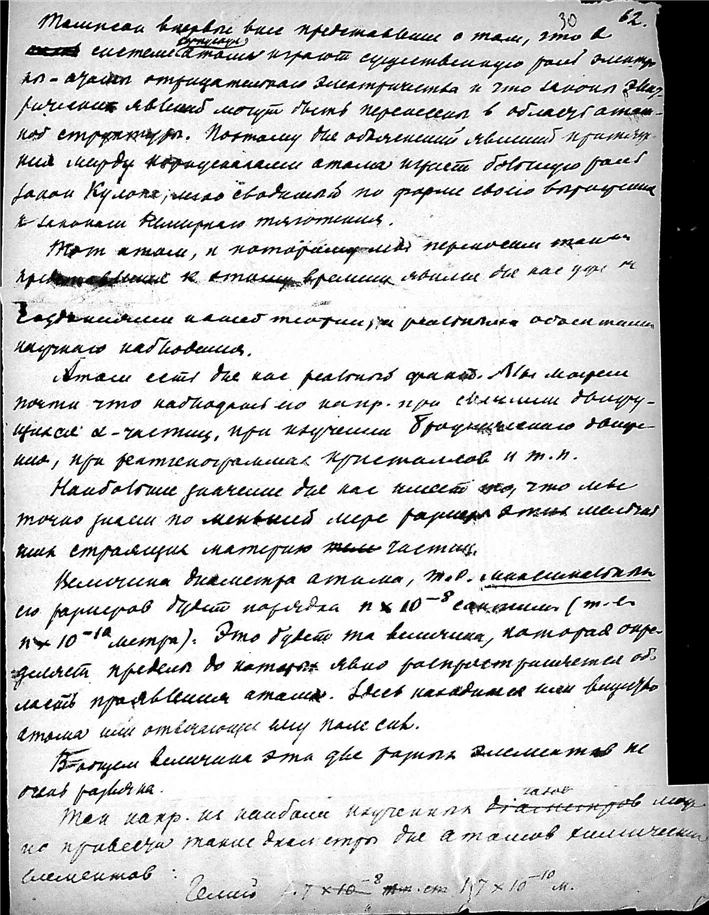 30 62.
Томпсон впервые внес представление о том, что в
системе атома играют существенную роль электро-
ны - атомы отрицательного электричества и что законы элект-
рических явлений могут быть перенесены в область атом-
ной структуры. Поэтому для объяснений явлений притяже-
ния между корпускулами атома играет большую роль
закон Кулона, легко сводимый по форме своего выражения
к законам всемирного тяготения.
Тот атом, к которому мы переносим
представления к этому времени явился для нас уже не
созданиями нашей теории, а реальным объектами
научного наблюдения.
Атом есть для нас реальный факт. Мы можем
почти что наблюдать его напр. при свечении движу-
щихся α-частиц, при изучении Броуновского движе-
ния, при рентгенограммах кристаллов и т.п.
Наибольшее значение для нас имеет то, что мы
точно знаем по меньшей мере размеры этих мельчай-
ших строящих материю тел частиц.
Величина диаметра атома, т.е. максимальных
его размеров будет порядка n × 10⁻⁸ сантим. (т.е.
n × 10⁻¹⁰ метра). Это будет та величина, которая опре-
деляет пределы до которых явно распространяется об-
ласть проявления атома. Здесь находится или внутри
атома или отвечающее ему поле сил.
В общем величина эта для разных элементов не
очень различна.
Так напр. из наиболее изученных диаметров мож-
но привести такие диаметры для атомов химических
элементов:
Гелий 1.7 × 10⁻⁸ см 1,7 × 10⁻¹⁰ м.